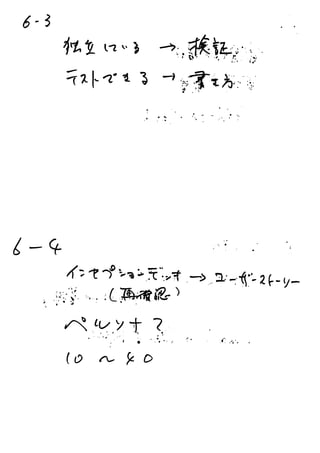 6-3
独立している → 検証
テストできる → 書き方
6-4
インセプションデッキ → ユーザーストーリー
(再確認)
ペルソナ?
10 ~ 40